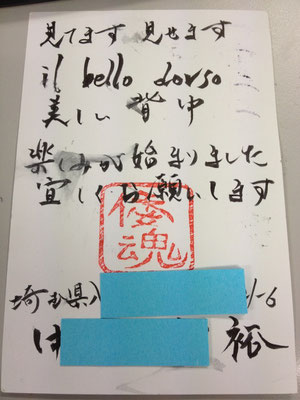 見てます 見せます
il bello dorso
美しい 背中
楽しみが始まりました
宜しくお願いします
倭魂
埼玉県
裕